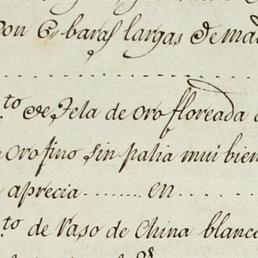 con 6 baras largas de mad
to de Tela de oro floreada
oro fino sin patia mui bien
aprecia ........ en
to de Raso de China blanco